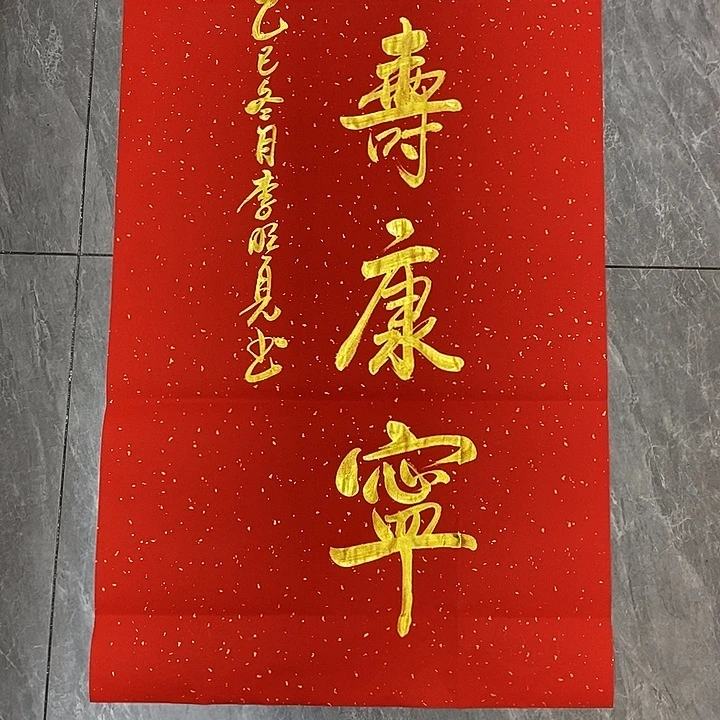 壽康寧
乙巳冬月李明見书